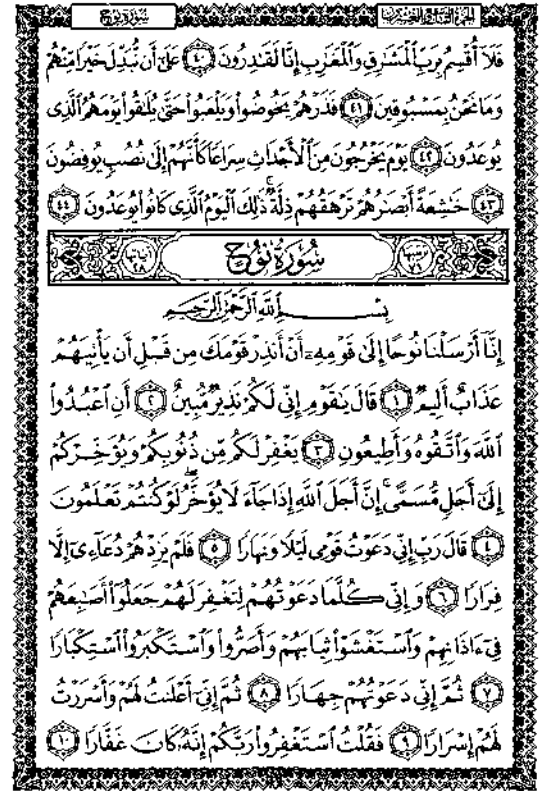 سُورَةُ نُوحٍ الجزء التاسع والعشرون
فَلَآ أُقْسِمُ بِرَبِّ ٱلْمَشَٰرِقِ وَٱلْمَغَٰرِبِ إِنَّا لَقَٰدِرُونَ ٤٠ عَلَىٰٓ أَن نُّبَدِّلَ خَيْرًا مِّنْهُمْ
وَمَا نَحْنُ بِمَسْبُوقِينَ ٤١ فَذَرْهُمْ يَخُوضُوا۟ وَيَلْعَبُوا۟ حَتَّىٰ يُلَٰقُوا۟ يَوْمَهُمُ ٱلَّذِى
يُوعَدُونَ ٤٢ يَوْمَ يَخْرُجُونَ مِنَ ٱلْأَجْدَاثِ سِرَاعًا كَأَنَّهُمْ إِلَىٰ نُصُبٍ يُوفِضُونَ
٤٣ خَٰشِعَةً أَبْصَٰرُهُمْ تَرْهَقُهُمْ ذِلَّةٌ ۚ ذَٰلِكَ ٱلْيَوْمُ ٱلَّذِى كَانُوا۟ يُوعَدُونَ ٤٤
ترتيبها ٧١ سُورَةُ نُوحٍ آياتها ٢٨
بِسْمِ ٱللَّهِ ٱلرَّحْمَٰنِ ٱلرَّحِيمِ
إِنَّآ أَرْسَلْنَا نُوحًا إِلَىٰ قَوْمِهِۦٓ أَنْ أَنذِرْ قَوْمَكَ مِن قَبْلِ أَن يَأْتِيَهُمْ
عَذَابٌ أَلِيمٌ ١ قَالَ يَٰقَوْمِ إِنِّى لَكُمْ نَذِيرٌ مُّبِينٌ ٢ أَنِ ٱعْبُدُوا۟
ٱللَّهَ وَٱتَّقُوهُ وَأَطِيعُونِ ٣ يَغْفِرْ لَكُم مِّن ذُنُوبِكُمْ وَيُؤَخِّرْكُمْ
إِلَىٰٓ أَجَلٍ مُّسَمًّى ۚ إِنَّ أَجَلَ ٱللَّهِ إِذَا جَآءَ لَا يُؤَخَّرُ ۖ لَوْ كُنتُمْ تَعْلَمُونَ
٤ قَالَ رَبِّ إِنِّى دَعَوْتُ قَوْمِى لَيْلًا وَنَهَارًا ٥ فَلَمْ يَزِدْهُمْ دُعَآءِىٓ إِلَّا
فِرَارًا ٦ وَإِنِّى كُلَّمَا دَعَوْتُهُمْ لِتَغْفِرَ لَهُمْ جَعَلُوٓا۟ أَصَٰبِعَهُمْ
فِىٓ ءَاذَانِهِمْ وَٱسْتَغْشَوْا۟ ثِيَابَهُمْ وَأَصَرُّوا۟ وَٱسْتَكْبَرُوا۟ ٱسْتِكْبَارًا
٧ ثُمَّ إِنِّى دَعَوْتُهُمْ جِهَارًا ٨ ثُمَّ إِنِّىٓ أَعْلَنتُ لَهُمْ وَأَسْرَرْتُ
لَهُمْ إِسْرَارًا ٩ فَقُلْتُ ٱسْتَغْفِرُوا۟ رَبَّكُمْ إِنَّهُۥ كَانَ غَفَّارًا ١٠